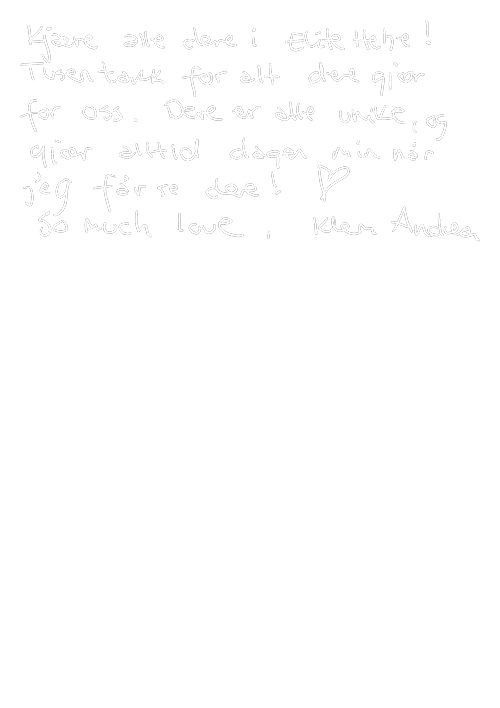 Kjære alle dere i Elite Helse!
Tusen takk for alt dere gjør
for oss. Dere er alle unike, og
gjør alltid dagen min når
jeg får se dere! ♡
So much love, Klem Andrea